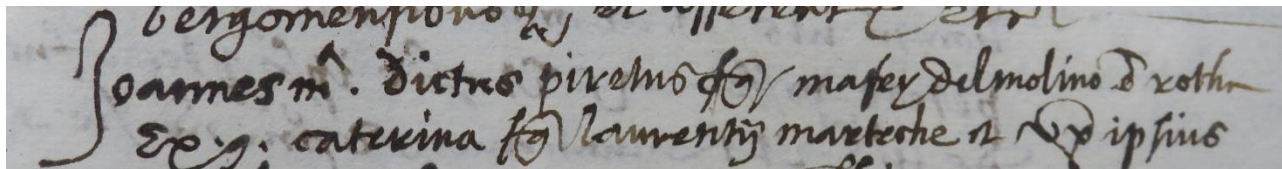 bergomensibus et asserent
Joannes m. dictus piretus fq mafey del molino d roth
Ex. q. caterina fq laurentij marteche et ux ipsius